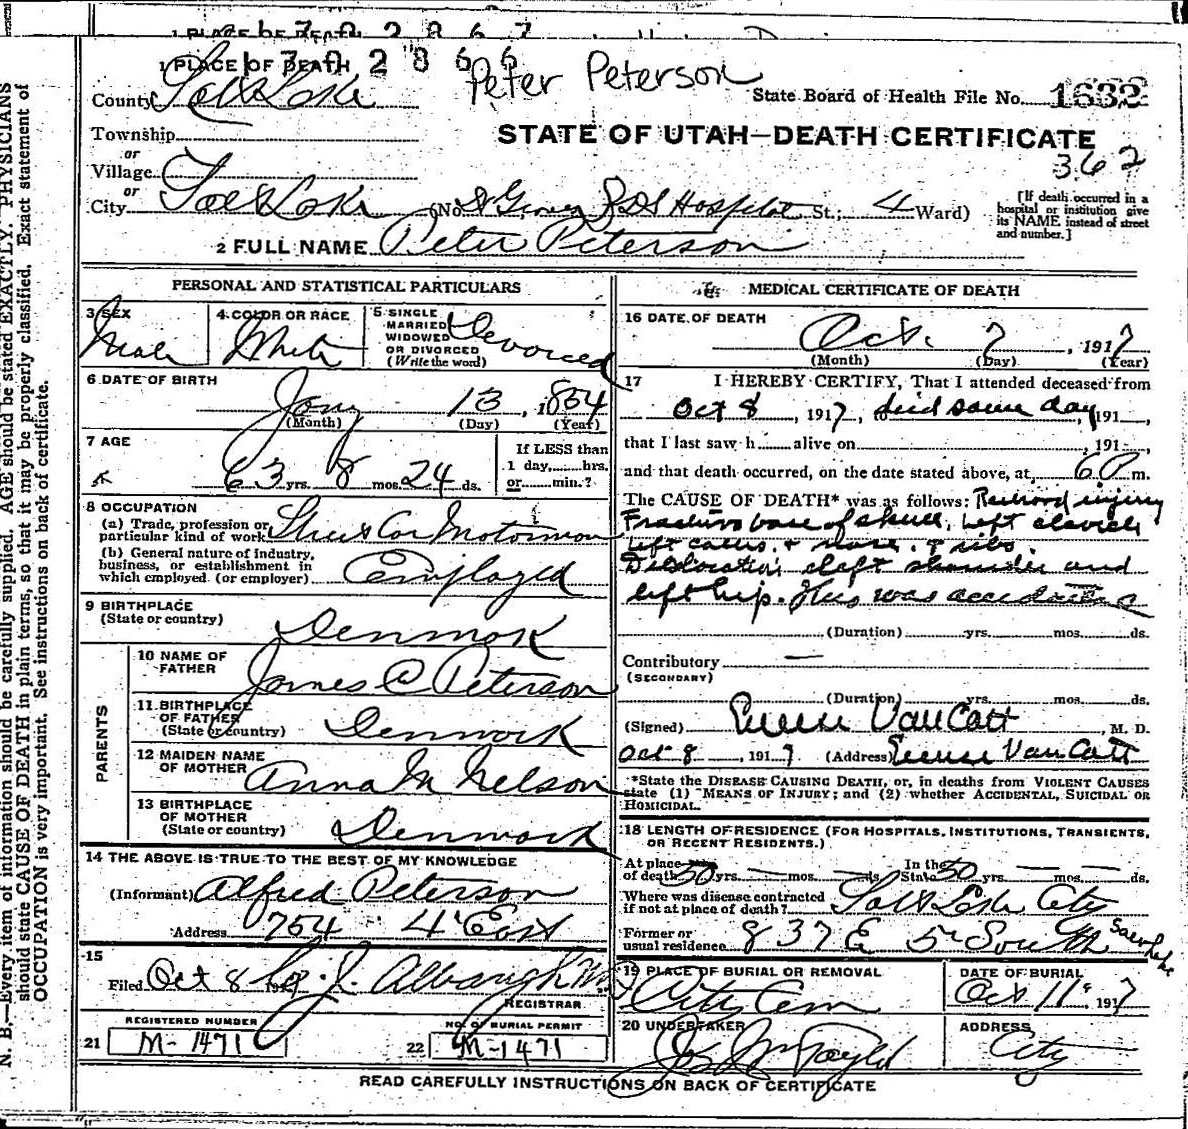 1 PLACE OF DEATH 2 8 6 7
1 PLACE OF DEATH 2 8 6 6
Peter Peterson
County Salt Lake
State Board of Health File No. 1632
Township
or
Village
or
City Salt Lake
STATE OF UTAH—DEATH CERTIFICATE
362
(No. LDS Hospital St.; 4 Ward)
[If death occurred in a
hospital or institution give
its NAME instead of street
and number.]
2 FULL NAME Peter Peterson
PERSONAL AND STATISTICAL PARTICULARS
3 SEX
Male
4 COLOR OR RACE
White
5 SINGLE
MARRIED
WIDOWED
OR DIVORCED
(Write the word)
Divorced
6 DATE OF BIRTH
Jany 13, 1854
(Month) (Day) (Year)
7 AGE
63 yrs. 8 mos. 24 ds.
If LESS than
1 day, hrs.
or min.?
8 OCCUPATION
(a) Trade, profession or
particular kind of work Street Car Motorman
(b) General nature of industry,
business, or establishment in
which employed (or employer) Employed
9 BIRTHPLACE
(State or country)
Denmark
PARENTS
10 NAME OF
FATHER
James C Peterson
11 BIRTHPLACE
OF FATHER
(State or country)
Denmark
12 MAIDEN NAME
OF MOTHER
Anna M Nelson
13 BIRTHPLACE
OF MOTHER
(State or country)
Denmark
14 THE ABOVE IS TRUE TO THE BEST OF MY KNOWLEDGE
(Informant) Alfred Peterson
Address 754 4 East
15
Filed Oct 8
REGISTRAR
REGISTERED NUMBER
21 M-1471
NO. OF BURIAL PERMIT
22 M-1471
MEDICAL CERTIFICATE OF DEATH
16 DATE OF DEATH
Oct. 7, 1917
(Month) (Day) (Year)
17 I HEREBY CERTIFY, That I attended deceased from
Oct 8, 1917, died same day, 191
that I last saw h alive on , 191
and that death occurred, on the date stated above, at 6 P m.
The CAUSE OF DEATH* was as follows: Railroad injury
Fracture base of skull, left clavicle
left & nose. & ribs.
Dislocation of left shoulder and
left hip. This was accidental
(Duration) yrs. mos. ds.
Contributory
(SECONDARY)
(Duration) yrs. mos. ds.
(Signed) Van Cott, M. D.
Oct 8, 1917 (Address) Van Cott
*State the DISEASE CAUSING DEATH, or, in deaths from VIOLENT CAUSES
state (1) MEANS OF INJURY; and (2) whether ACCIDENTAL, SUICIDAL OR
HOMICIDAL.
18 LENGTH OF RESIDENCE (FOR HOSPITALS, INSTITUTIONS, TRANSIENTS,
OR RECENT RESIDENTS.)
At place
of death 50 yrs. mos. ds.
In the
State 50 yrs. mos. ds.
Where was disease contracted
if not at place of death? Salt Lake City
Former or
usual residence 837 E 5th South Salt Lake
19 PLACE OF BURIAL OR REMOVAL
City Cem
DATE OF BURIAL
Oct 11, 1917
20 UNDERTAKER
ADDRESS
City
READ CAREFULLY INSTRUCTIONS ON BACK OF CERTIFICATE
N. B.—Every item of information should be carefully supplied. AGE should be stated EXACTLY. PHYSICIANS
should state CAUSE OF DEATH in plain terms, so that it may be properly classified. Exact statement of
OCCUPATION is very important. See instructions on back of certificate.